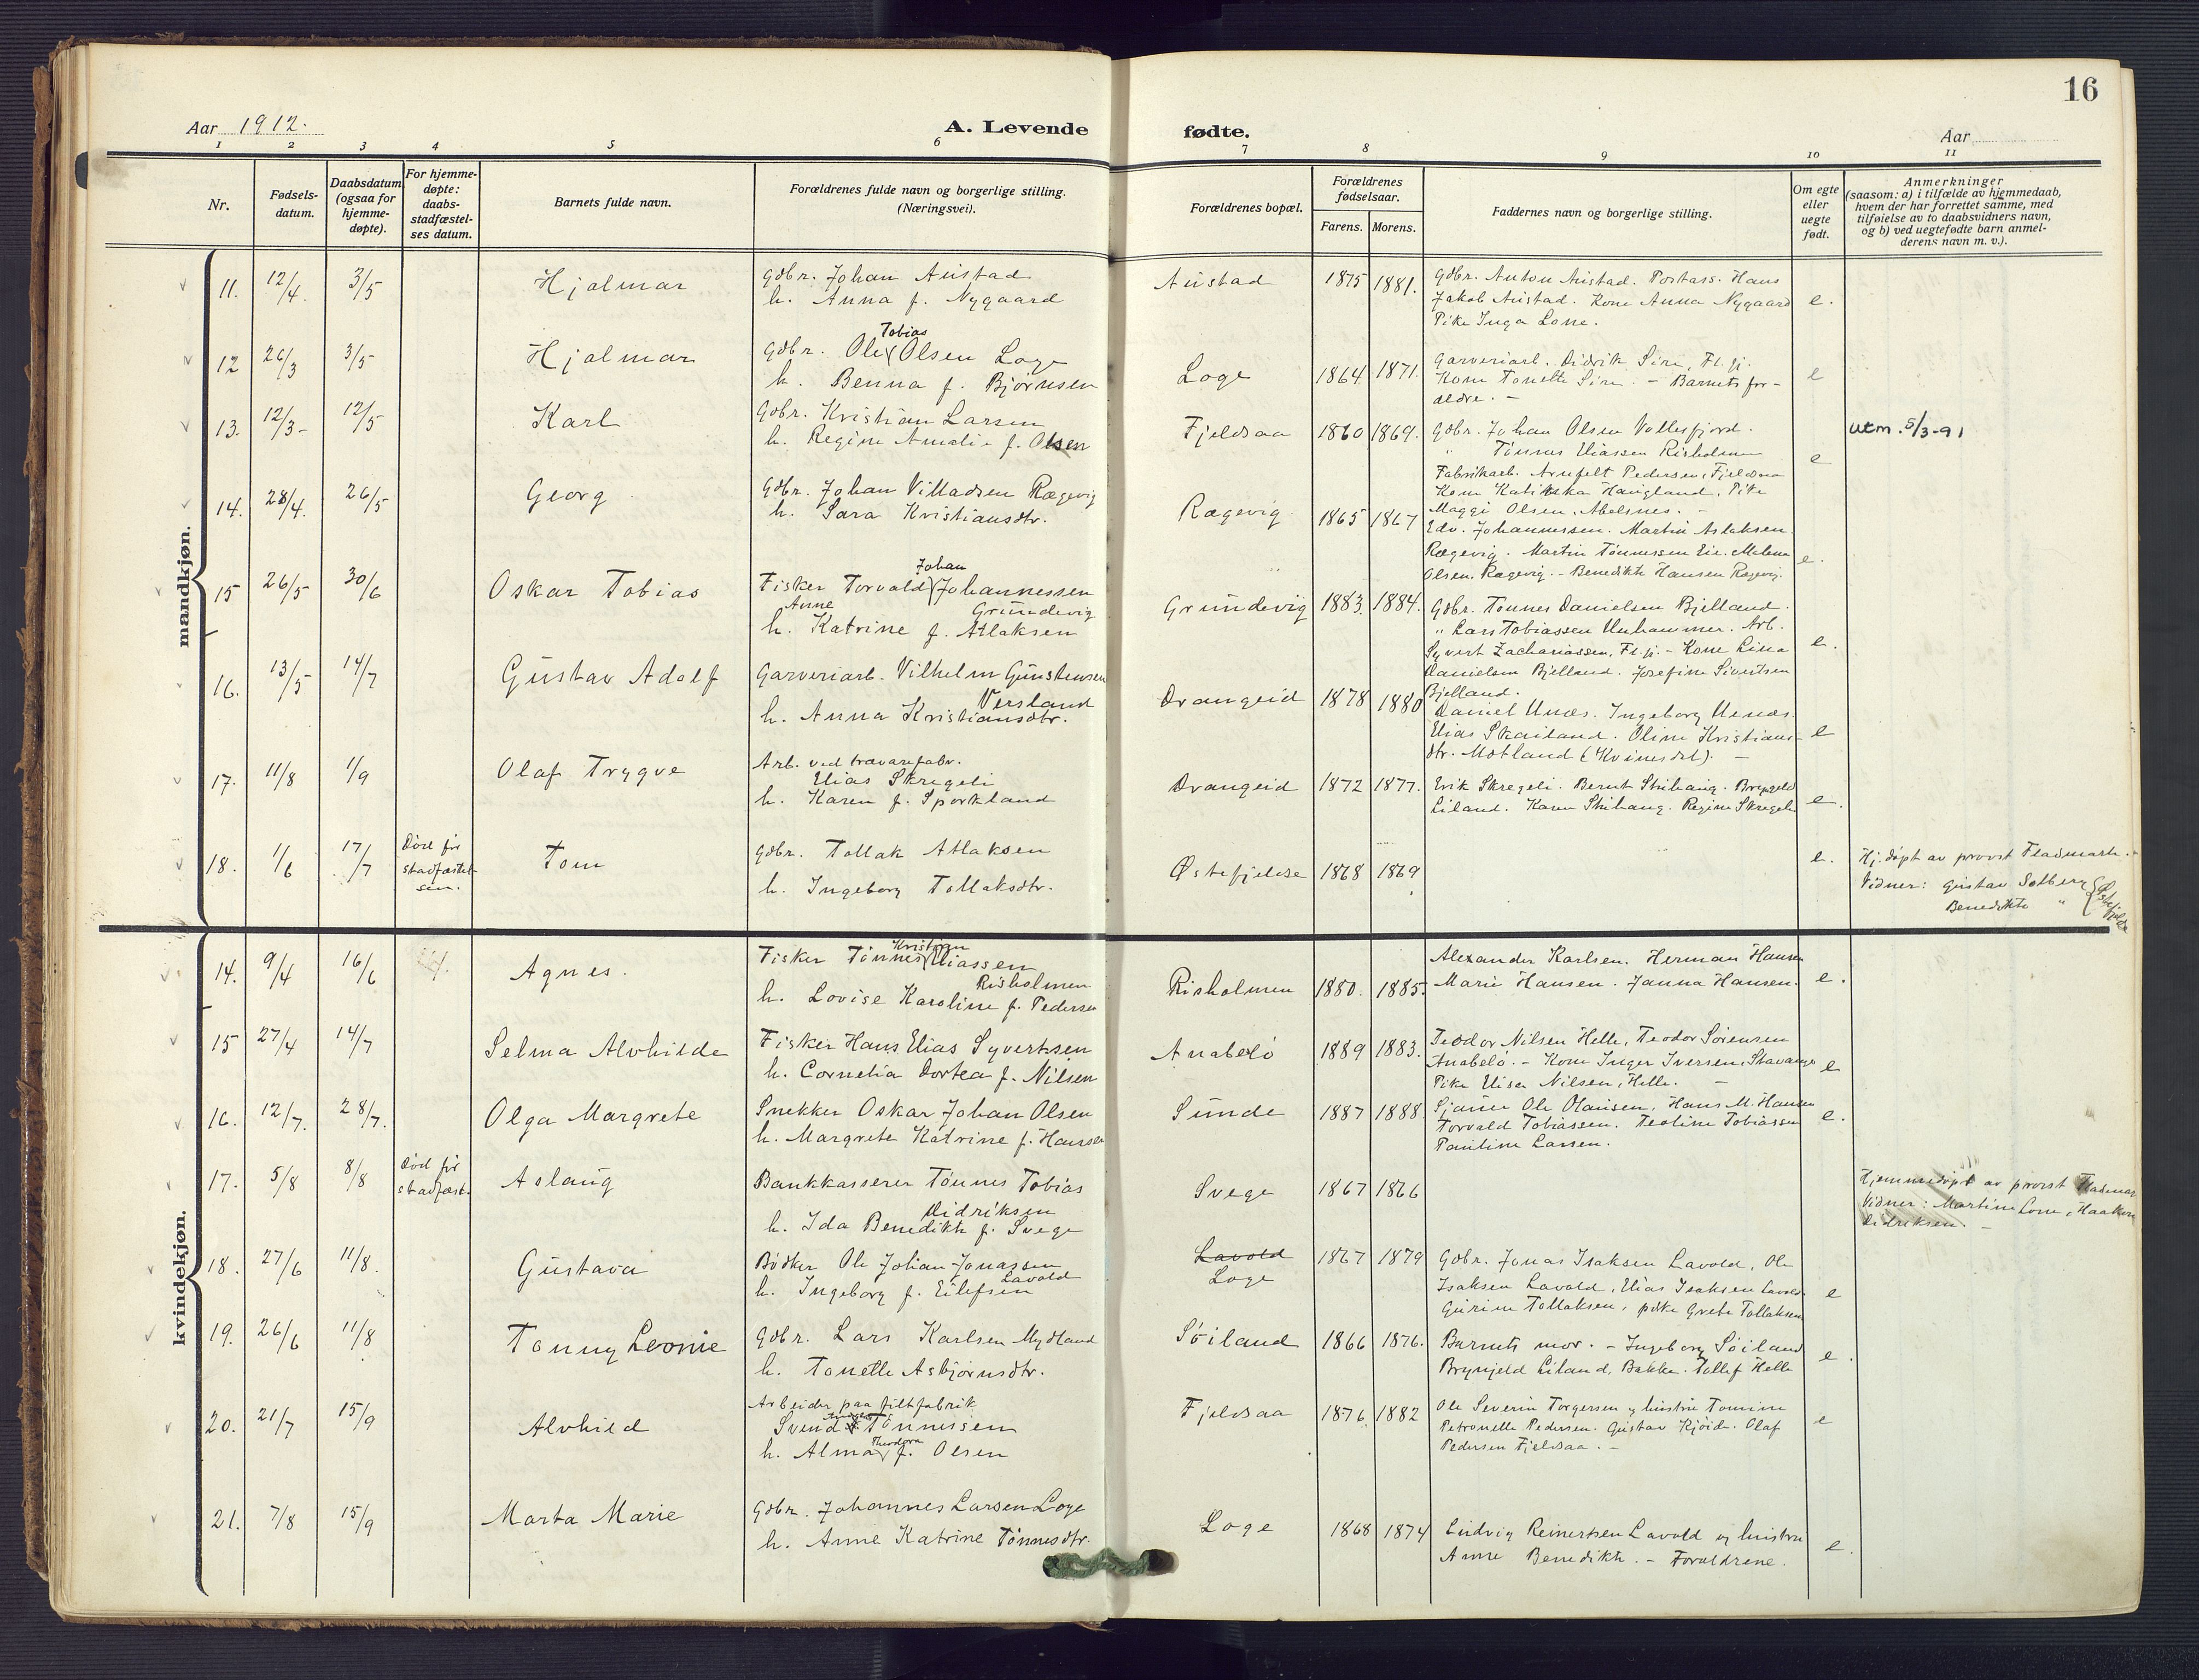 16
Aar 1912.
A. Levende
fødte.
Aar
1 2 3 4 5 6 7 8 9 10 11
Nr.
Fødsels-
datum.
Daabsdatum
(ogsaa for
hjemme-
døpte).
For hjemme-
døpte:
daabs-
stadfæstel-
ses datum.
Barnets fulde navn.
Forældrenes fulde navn og borgerlige stilling.
(Næringsvei).
Forældrenes bopæl.
Forældrenes
fødselsaar.
Farens. Morens.
Faddernes navn og borgerlige stilling.
Om egte
eller
uegte
født.
Anmerkninger
(saasom: a) i tilfælde av hjemmedaab,
hvem der har forrettet samme, med
tilføielse av to daabsvidners navn,
og b) ved uegtefødte barn anmel-
derens navn m. v.).
mandkjøn.
11. 12/4. 3/5 Hjalmar
Gdbr. Johan Austad
h. Anna f. Nygaard
Austad 1875 1881.
Gdbr. Anton Austad. Postass. Hans
Jakob Austad. Kone Anna Nygaard
Pike Inga Lone.
e.
12 26/3 3/5 Hjalmar
Tobias
Gdbr. Ole Olsen Loge
h. Benna f. Bjørnsen
Loge 1864 1871.
Garveriarb. Didrik Sira, Fl.fj.
Kone Tonette Sira. - Barnets for-
ældre. -
e
13. 12/3- 12/5 Karl
Gdbr. Kristian Larsen
h. Regine Amalie f. Olsen
Fjeldsaa 1860 1869.
Gdbr. Johan Olsen Vollesfjord.
" Tønnes Eliassen Risholmen
Fabrikarb. Arnfelt Pedersen, Fjeldsaa
Kone Haugland, Pike
Maggi Olsen, Abelsnes. -
e
utm. 5/3-91
14. 28/4. 26/5 Georg
Gdbr. Johan Villadsen Rægevig
h. Sara Kristiansdtr.
Rægevig 1865 1867
Edv. Johannessen. Martin Aslaksen
Rægevig. Martin Tønnessen Eie. Malena
Olsen, Rægevig. - Benedikte Hansen Rægevig.
e.
15 26/5 30/6 Oskar Tobias
Johan
Fisker Torvald Johannessen
Anne Grundevig
h. Katrine f. Atlaksen
Grundevig 1883. 1884.
Gdbr. Tønnes Danielsen Bjelland.
" Lars Tobiassen Unhammer. Arb.
Syvert Zachariassen, Fl.fj. - Kone Lina
Danielsen Bjelland. Josefine Sivertsen
Bjelland.
e.
16. 13/5 14/7 Gustav Adolf
Garveriarb. Vilhelm Gunstensen
Versland
h. Anna Kristiansdtr.
Drangeid 1878 1880
Daniel Uenæs. Ingeborg Uenæs.
Elias Skailand. Oline Kristians-
dtr. Motland (Kvinesdal). -
e
17. 11/8 1/9 Olaf Trygve
Arb. ved trævarefabr.
Elias Skregeli
h. Karen f. Sporkland
Drangeid 1872 1877.
Erik Skregeli. Bernt Stribaug. Brynjeld
Liland. Karen Stribaug. Regine Skregeli
e.
18. 1/6 17/7
Død før
stadfæstel-
sen.
Tom
Gdbr. Tollak Atlaksen
h. Ingeborg Tollaksdtr.
Østefjeldse 1868 1869
e.
Hj.døpt av provst Fladmark.
Vidner: Gustav Solberg
Benedikte "
kvindekjøn.
14. 9/4 16/6 Agnes.
Kristian
Fisker Tønnes Eliassen
Risholmen
h. Lovise Karoline f. Pedersen
Risholmen 1880. 1885.
Alexander Karlsen. Herman Hansen
Marie Hansen. Janna Hansen.
e.
15 27/4 14/7 Selma Alvhilde
Fisker Hans Elias Syvertsen
h. Cornelia Dortea f. Nilsen
Anabelø 1889 1883.
Teodor Nilsen Helle, Teodor Sørensen
Anabelø. - Kone Inger Iversen, Stavanger
Pike Elise Nilsen, Helle. -
e
16. 12/7. 28/7. Olga Margrete
Snekker Oskar Johan Olsen
h. Margrete Katrine f. Hansen
Sunde 1887 1888.
Sjauer Ole Olausen, Hans M. Hansen
Torvald Tobiassen. Teoline Tobiassen
Pauline Larsen.
e.
17. 5/8 8/8
Død før
stadfæst.
Aslaug
Bankkasserer Tønnes Tobias
Didriksen
h. Ida Benedikte f. Svege
Svege 1867 1866
Hjemmedøpt av provst Fladmark
Vidner: Martine Lone, Haakon
Didriksen. -
18. 27/6 11/8. Gustava
Bødker Ole Johan Jonassen
Lavold
h. Ingeborg f. Eilefsen
Lavold
Loge 1867 1879
Gdbr. Jonas Isaksen Lavold, Ole
Isaksen Lavold, Elias Isaksen Lavold.
Gurine Tollaksen, pike Grete Tollaksen
e
19. 26/6 11/8 Tonny Leonie
Gdbr. Lars Karlsen Mydland
h. Tonette Asbjørnsdtr.
Søiland 1866 1876.
Barnets mor. - Ingeborg Søiland
Brynjeld Liland, Bakke. Tollef Helle
e.
20. 21/7 15/9 Alvhild
Arbeider paa filtfabrik
Svend Tønnessen
Theodora
h. Alma f. Olsen
Fjeldsaa 1876 1882
Ole Severin Torgersen og hustru Tomine
Petronelle Pedersen. Gustav Kjøide. Olaf
Pedersen Fjeldsaa. -
e
21. 7/8 15/9 Marta Marie
Gdbr. Johannes Larsen Loge
h. Anne Katrine Tønnesdtr.
Loge 1868 1874
Ludvig Reinertsen Lavold og hustru
Anne Benedikte. - Forældrene.
e.